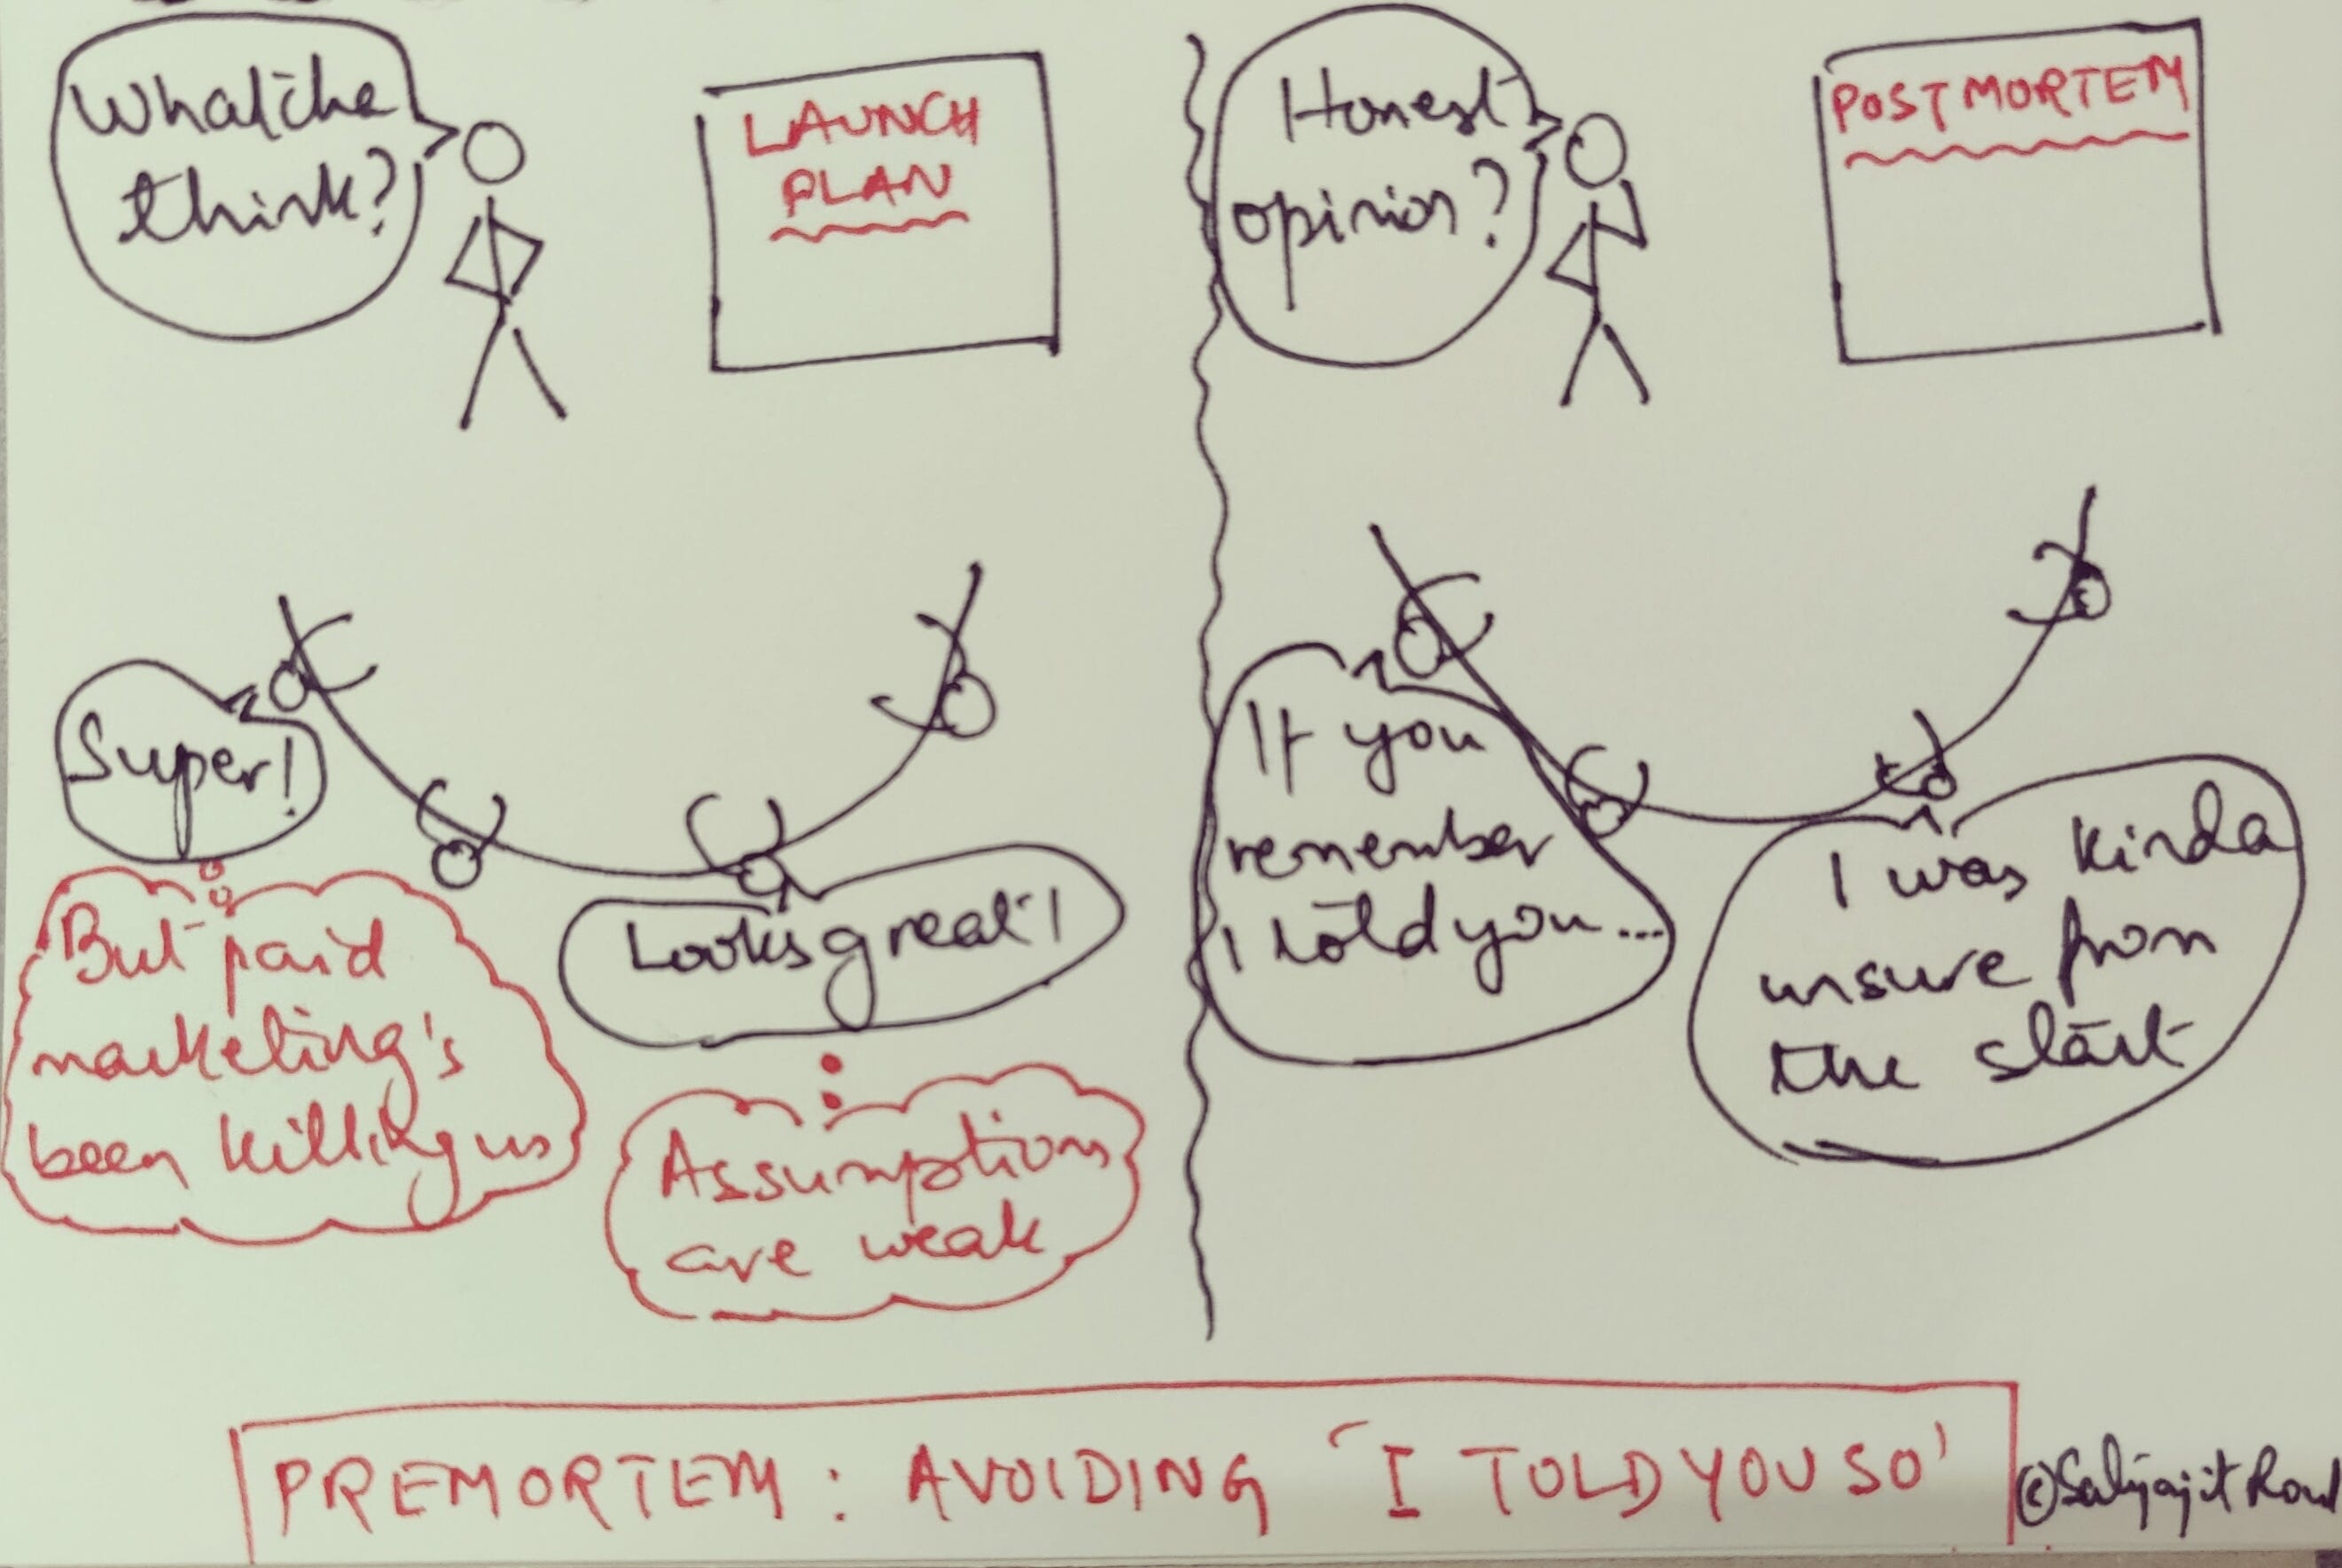 Whatcha
think?
LAUNCH
PLAN
Super!
But paid
marketing's
been killing us
Looks great!
Assumptions
are weak
Honest
opinion?
POSTMORTEM
If you
remember
I told you...
I was kinda
unsure from
the start
PREMORTEM: AVOIDING 'I TOLD YOU SO'
©Satyajit Rout